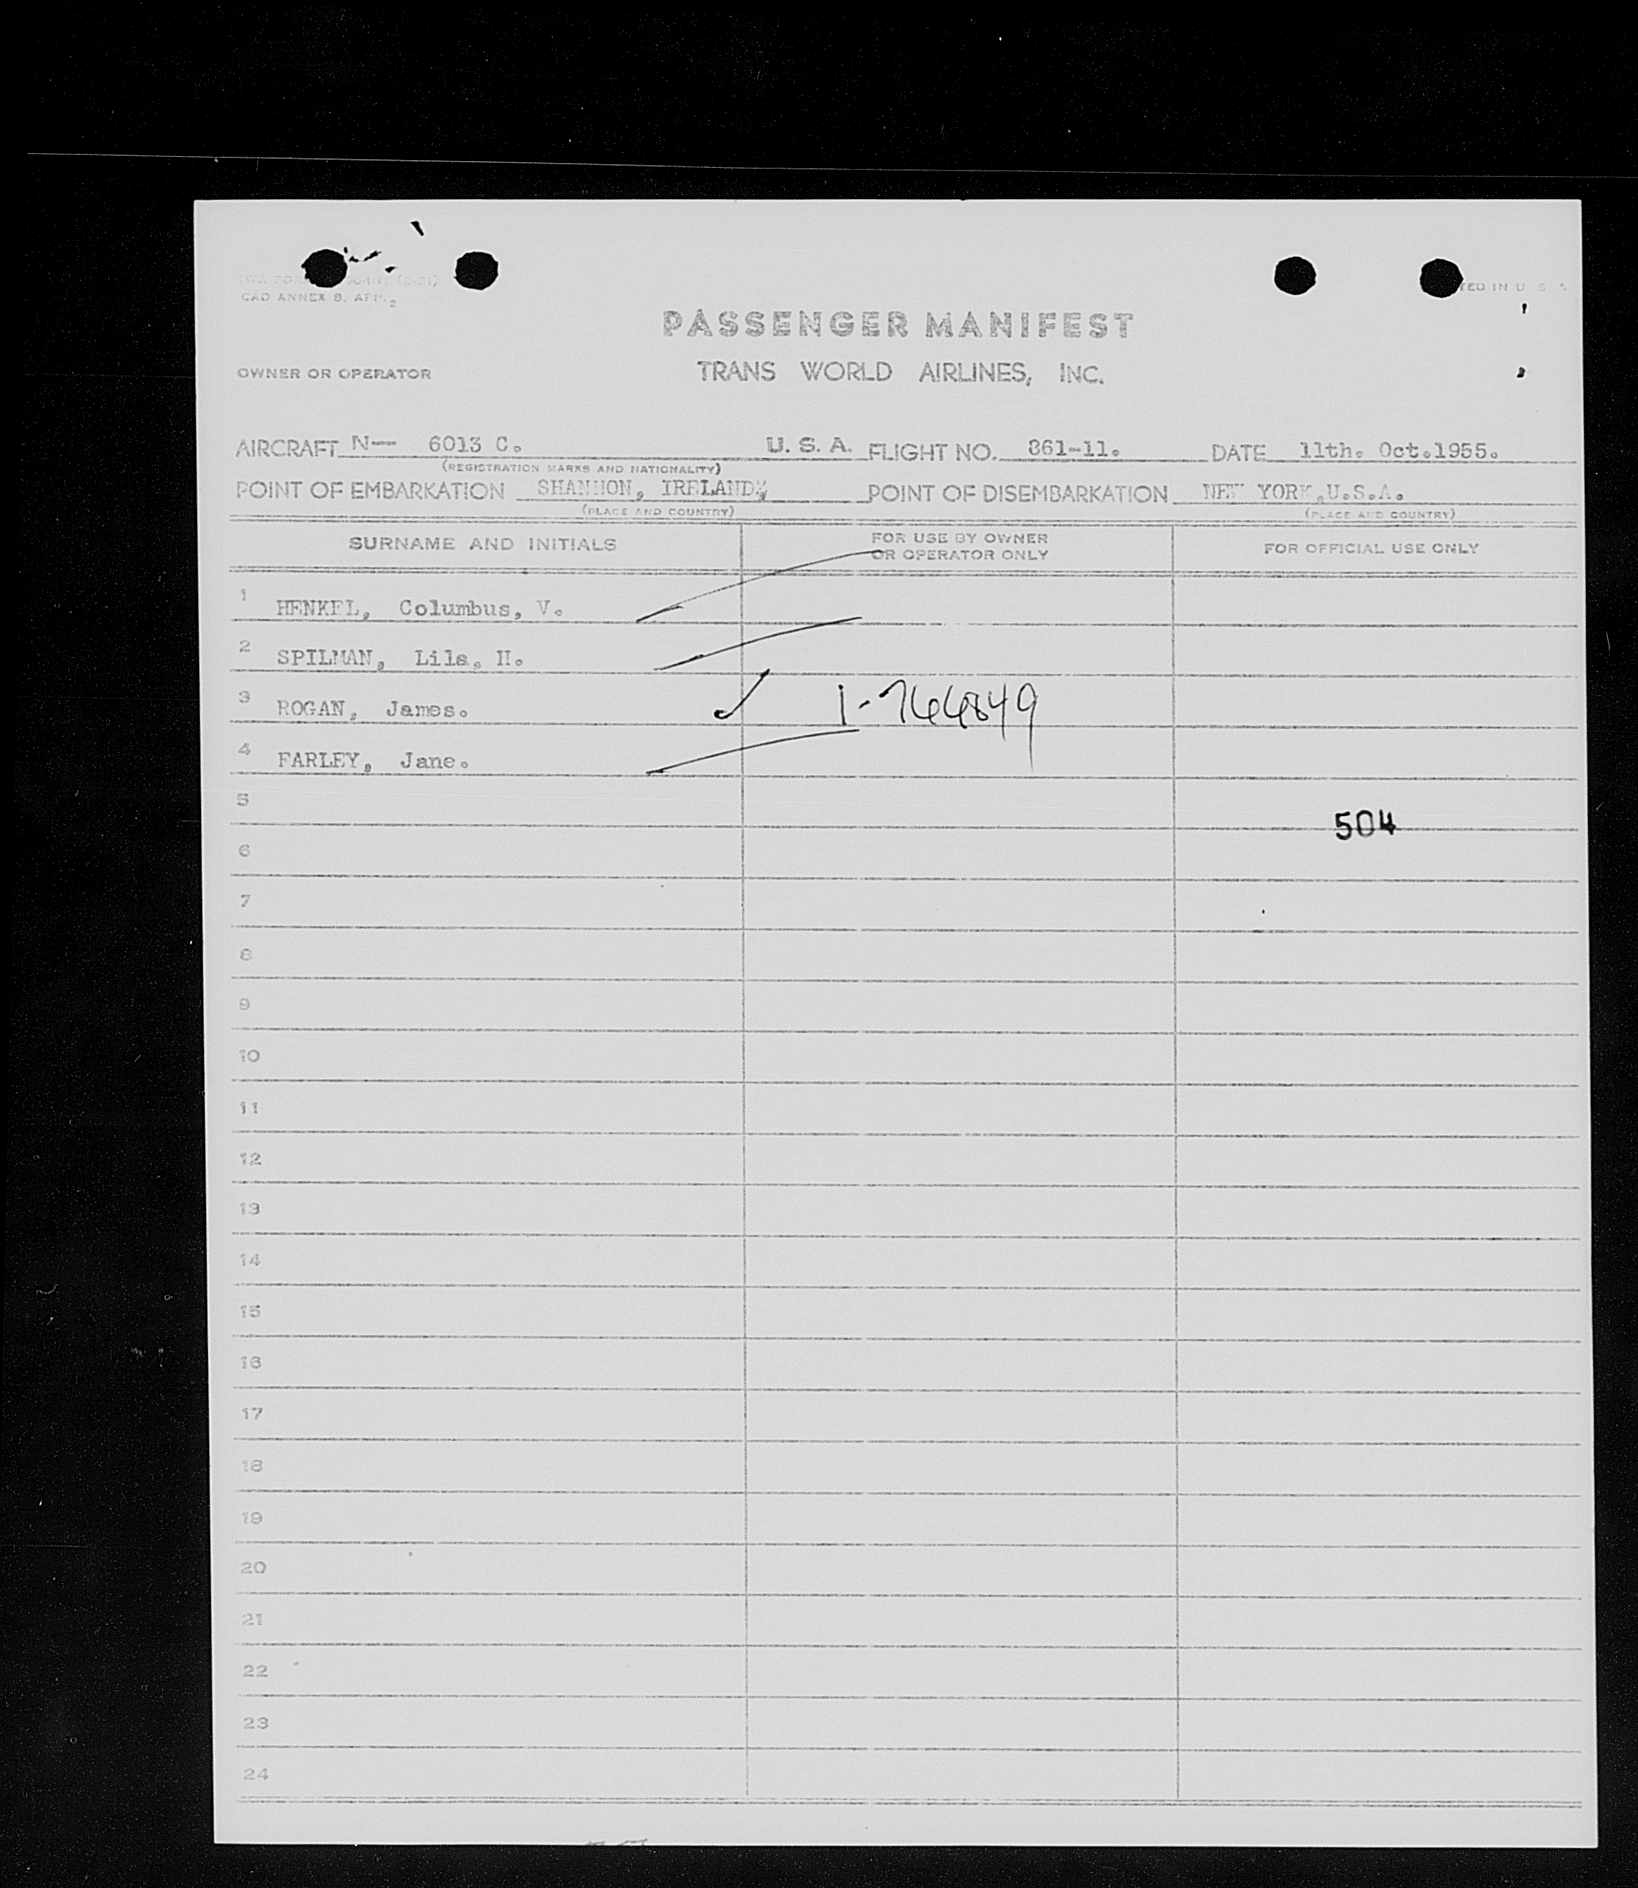 CAO ANNEX 9, APP. 2
PASSENGER MANIFEST
OWNER OR OPERATOR TRANS WORLD AIRLINES, INC.
AIRCRAFT N— 6013 C. U. S. A. FLIGHT NO. 861-11. DATE 11th. Oct.1955.
(REGISTRATION MARKS AND NATIONALITY)
POINT OF EMBARKATION SHANNON, IRELAND, POINT OF DISEMBARKATION NEW YORK,U.S.A.
(PLACE AND COUNTRY) (PLACE AND COUNTRY)
SURNAME AND INITIALS FOR USE BY OWNER OR OPERATOR ONLY FOR OFFICIAL USE ONLY
1 HENKEL, Columbus, V.
2 SPILMAN, Lila, H.
3 ROGAN, James. 1-764849
4 FARLEY, Jane.
5
504
6
7
8
9
10
11
12
13
14
15
16
17
18
19
20
21
22
23
24